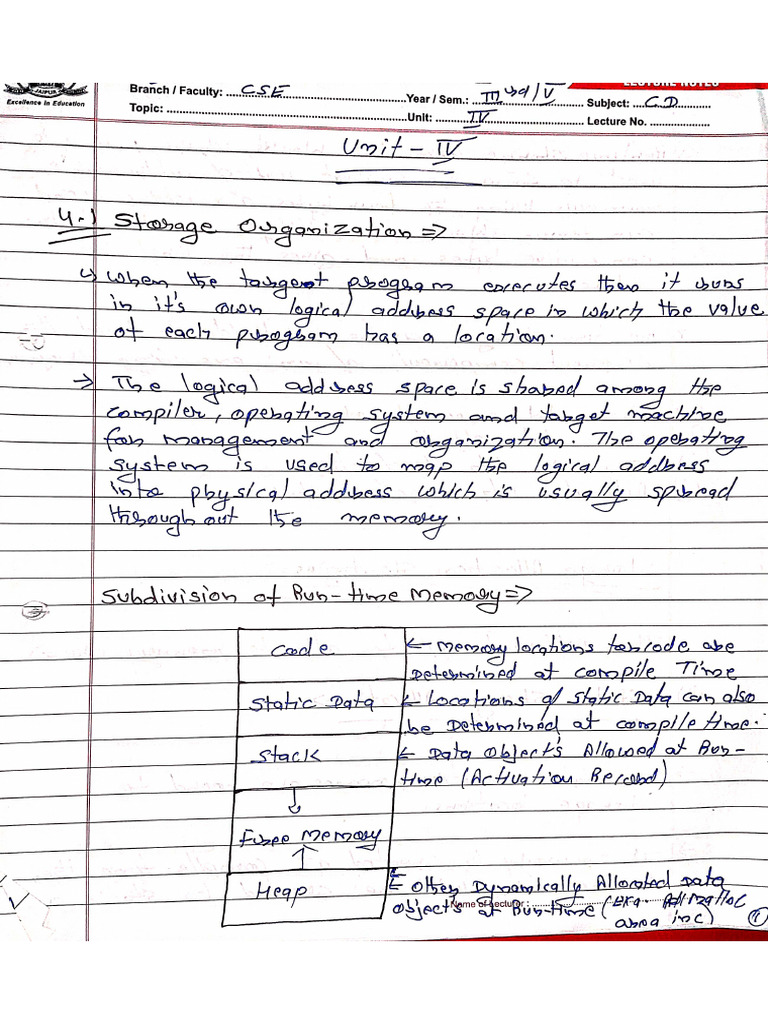 JAIPUR
Excellence in Education
LECTURE NOTES
Branch / Faculty: CSE Year / Sem.: IIIrd/V Subject: C.D
Topic: Unit: IV Lecture No.
Unit - IV
4.1 Storage Organization ⇒
↳ When the target program executes then it runs
in it's own logical address space in which the value
of each program has a location.
→ The logical address space is shared among the
compiler, operating system and target machine
for management and organization. The operating
system is used to map the logical address
into physical address which is usually spread
throughout the memory.
Subdivision of Run-time Memory ⇒
Code ← Memory locations for code are
Determined at compile Time
Static Data ← Locations of Static Data can also
be Determined at compile time.
Stack ← Data Object's Allowed at Run-
time (Activation Record)
↓
Free Memory
↑
Heap ← Other Dynamically Allocated Data
Object's at Run-time (
Name of Lecturer:
area in C)
1